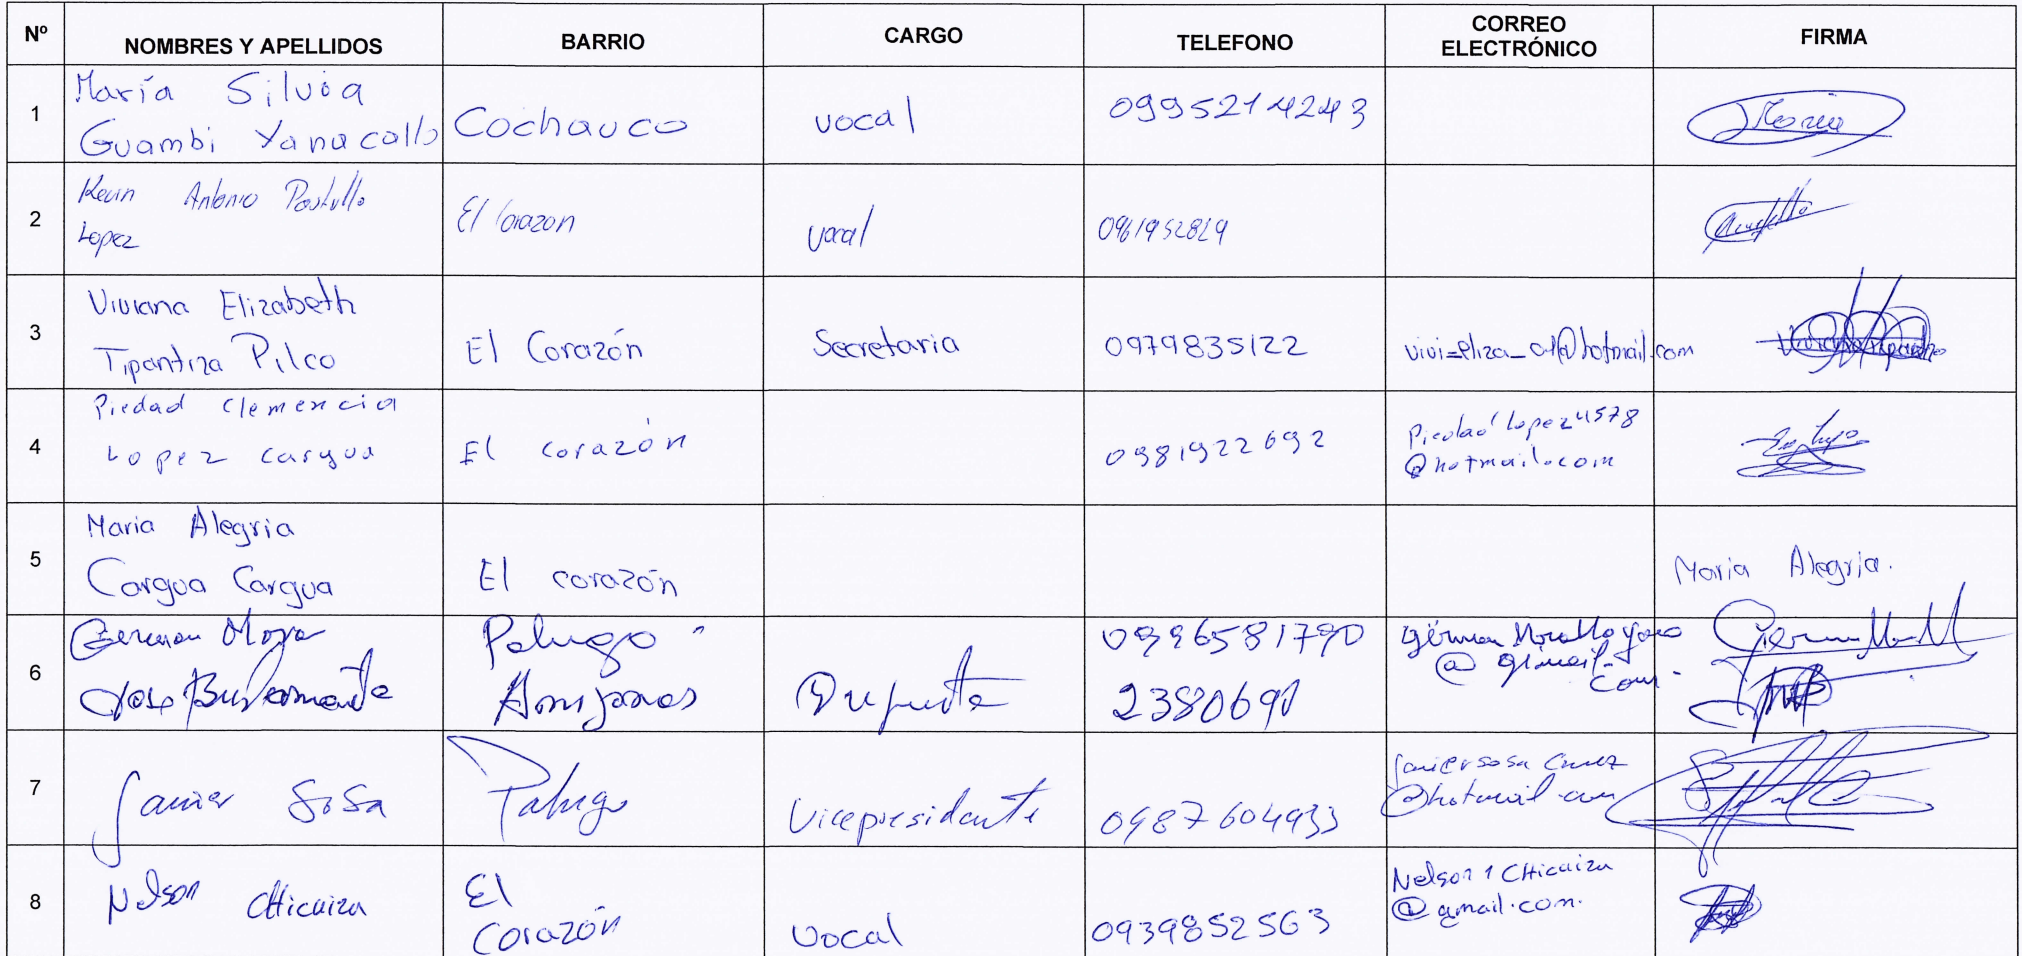 Nº NOMBRES Y APELLIDOS BARRIO CARGO TELEFONO CORREO ELECTRÓNICO FIRMA
1
María Silvia
Guambi Yanacallo
Cochauco
vocal
0995214243
María
2
Kevin Antonio
Lopez
El Corazon
vocal
0961952829
3
Viviana Elizabeth
Tipantiza Pilco
El Corazón
Secretaria
0979835122
4
Piedad Clemencia
Lopez Cargua
El corazón
0981922692
Piedad Lopez4578
@hotmail.com
5
Maria Alegria
Cargua Cargua
El corazón
Maria Alegria.
6
German
Jose
Palugo
0996581790
2380691
German
7
Javier Sosa
Palugo
Vicepresidente
0987604933
@hotmail.com
8
Nelson Chicaiza
El
Corazón
Vocal
0939852563
Nelson1Chicaiza
@gmail.com.